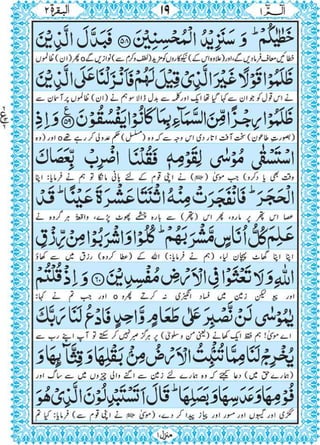 الٓـمّٓ ۱ ۱۹ البقرة ۲
خَطٰیٰكُمْ ؕ وَ سَنَزِیْدُ الْمُحْسِنِیْنَ ﴿۵۸﴾ فَبَدَّلَ الَّذِیْنَ
ظَلَمُوْا قَوْلًا غَیْرَ الَّذِیْ قِیْلَ لَهُمْ فَاَنْزَلْنَا عَلَی الَّذِیْنَ
نے اس قول کو جو ان سے کہا گیا تھا ایک اور کلمہ سے بدل ڈالا سو ہم نے (ان) ظالموں پر آسمان سے
ظَلَمُوْا رِجْزًا مِّنَ السَّمَآءِ بِمَا كَانُوْا یَفْسُقُوْنَ ﴿۵۹﴾ وَ اِذِ
(بصورتِ طاعون) سخت آفت اتار دی اس وجہ سے کہ وہ (مسلسل) حکم عدولی کر رہے تھے اور (وہ
اسْتَسْقٰی مُوْسٰی لِقَوْمِهٖ فَقُلْنَا اضْرِبْ بِّعَصَاكَ
وقت بھی یاد کرو) جب موسیٰ نے اپنی قوم کے لئے پانی مانگا تو ہم نے فرمایا: اپنا
الْحَجَرَ ؕ فَانْفَجَرَتْ مِنْهُ اثْنَتَا عَشْرَةَ عَیْنًا ؕ قَدْ
عصا اس پتھر پر مارو، پھر اس (پتھر) سے بارہ چشمے پھوٹ پڑے، واقعۃً ہر گروہ نے
عَلِمَ كُلُّ اُنَاسٍ مَّشْرَبَهُمْ ؕ كُلُوْا وَ اشْرَبُوْا مِنْ رِّزْقِ
اپنا اپنا گھاٹ پہچان لیا، (ہم نے فرمایا:) اللہ کے (عطا کردہ) رزق میں سے کھاؤ
اللّٰهِ وَ لَا تَعْثَوْا فِی الْاَرْضِ مُفْسِدِیْنَ ﴿۶۰﴾ وَ اِذْ قُلْتُمْ
اور پیو لیکن زمین میں فساد انگیزی نہ کرتے پھرو اور جب تم نے کہا:
یٰمُوْسٰی لَنْ نَّصْبِرَ عَلٰی طَعَامٍ وَّاحِدٍ فَادْعُ لَنَا رَبَّكَ
اے موسیٰ! ہم فقط ایک کھانے (یعنی من و سلویٰ) پر ہرگز صبر نہیں کر سکتے تو آپ اپنے رب سے
یُخْرِجْ لَنَا مِمَّا تُنْۢبِتُ الْاَرْضُ مِنْۢ بَقْلِهَا وَ قِثَّآئِهَا وَ
(ہمارے حق میں) دعا کیجئے کہ وہ ہمارے لئے زمین سے اگنے والی چیزوں میں سے ساگ اور
فُوْمِهَا وَ عَدَسِهَا وَ بَصَلِهَا ؕ قَالَ اَتَسْتَبْدِلُوْنَ الَّذِیْ هُوَ
ککڑی اور گیہوں اور مسور اور پیاز پیدا کر دے، (موسیٰ نے اپنی قوم سے) فرمایا: کیا تم
منزل ۱